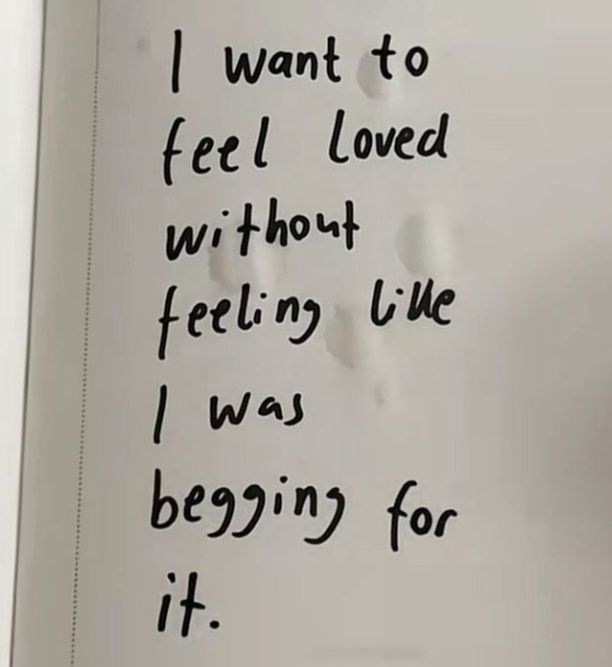 I want to
feel loved
without
feeling like
I was
begging for
it.